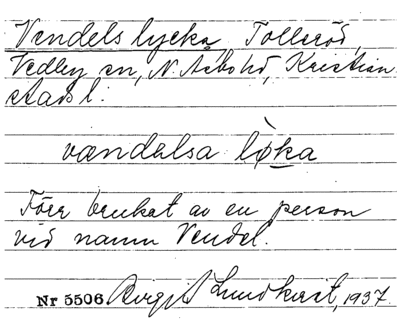 Vendels lycka Tolleröd,
Vedby sn, N. Åsbo hd, Kristian
stads l.
vændalsa lø̀ka
Förr brukat av en person
vid namn Vendel.
Nr 5506 Birgit Lundkvist, 1937.